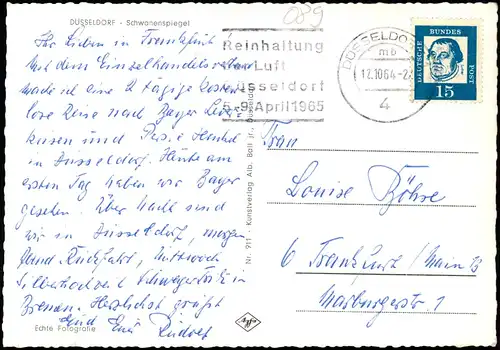 DÜSSELDORF - Schwanenspiegel
089
Ihr Lieben in Frankfurt!
Mit dem Einzelhandels
mache ich eine 2 tägige kosten-
lose Reise nach Bayer Lever-
kusen und Persil Henkel
in Düsseldorf. Heute am
ersten Tag haben wir Bayer
gesehen. Über Nacht sind
wir in Düsseldorf, morgen
Abend Rückfahrt, Mittwoch
Silberhochzeit
Bremen. Herzlichst grüßt
Euch Euer Rudolf
Echte Fotografie
Reinhaltung
der Luft
Düsseldorf
5.-9. April 1965
DÜSSELDORF
mb
12.10.64
4
DEUTSCHE BUNDESPOST
15
Nr. 911 Kunstverlag Alb.
Frau
Louise Böhse
6 Frankfurt/Main
Marburgerstr. 1